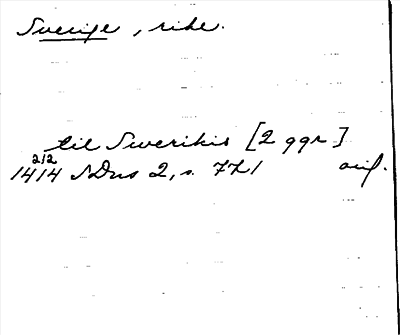 Sverige, rike.
til Swerikis [2 ggr]
2/2
1414 SDns 2, s. 771 avs.